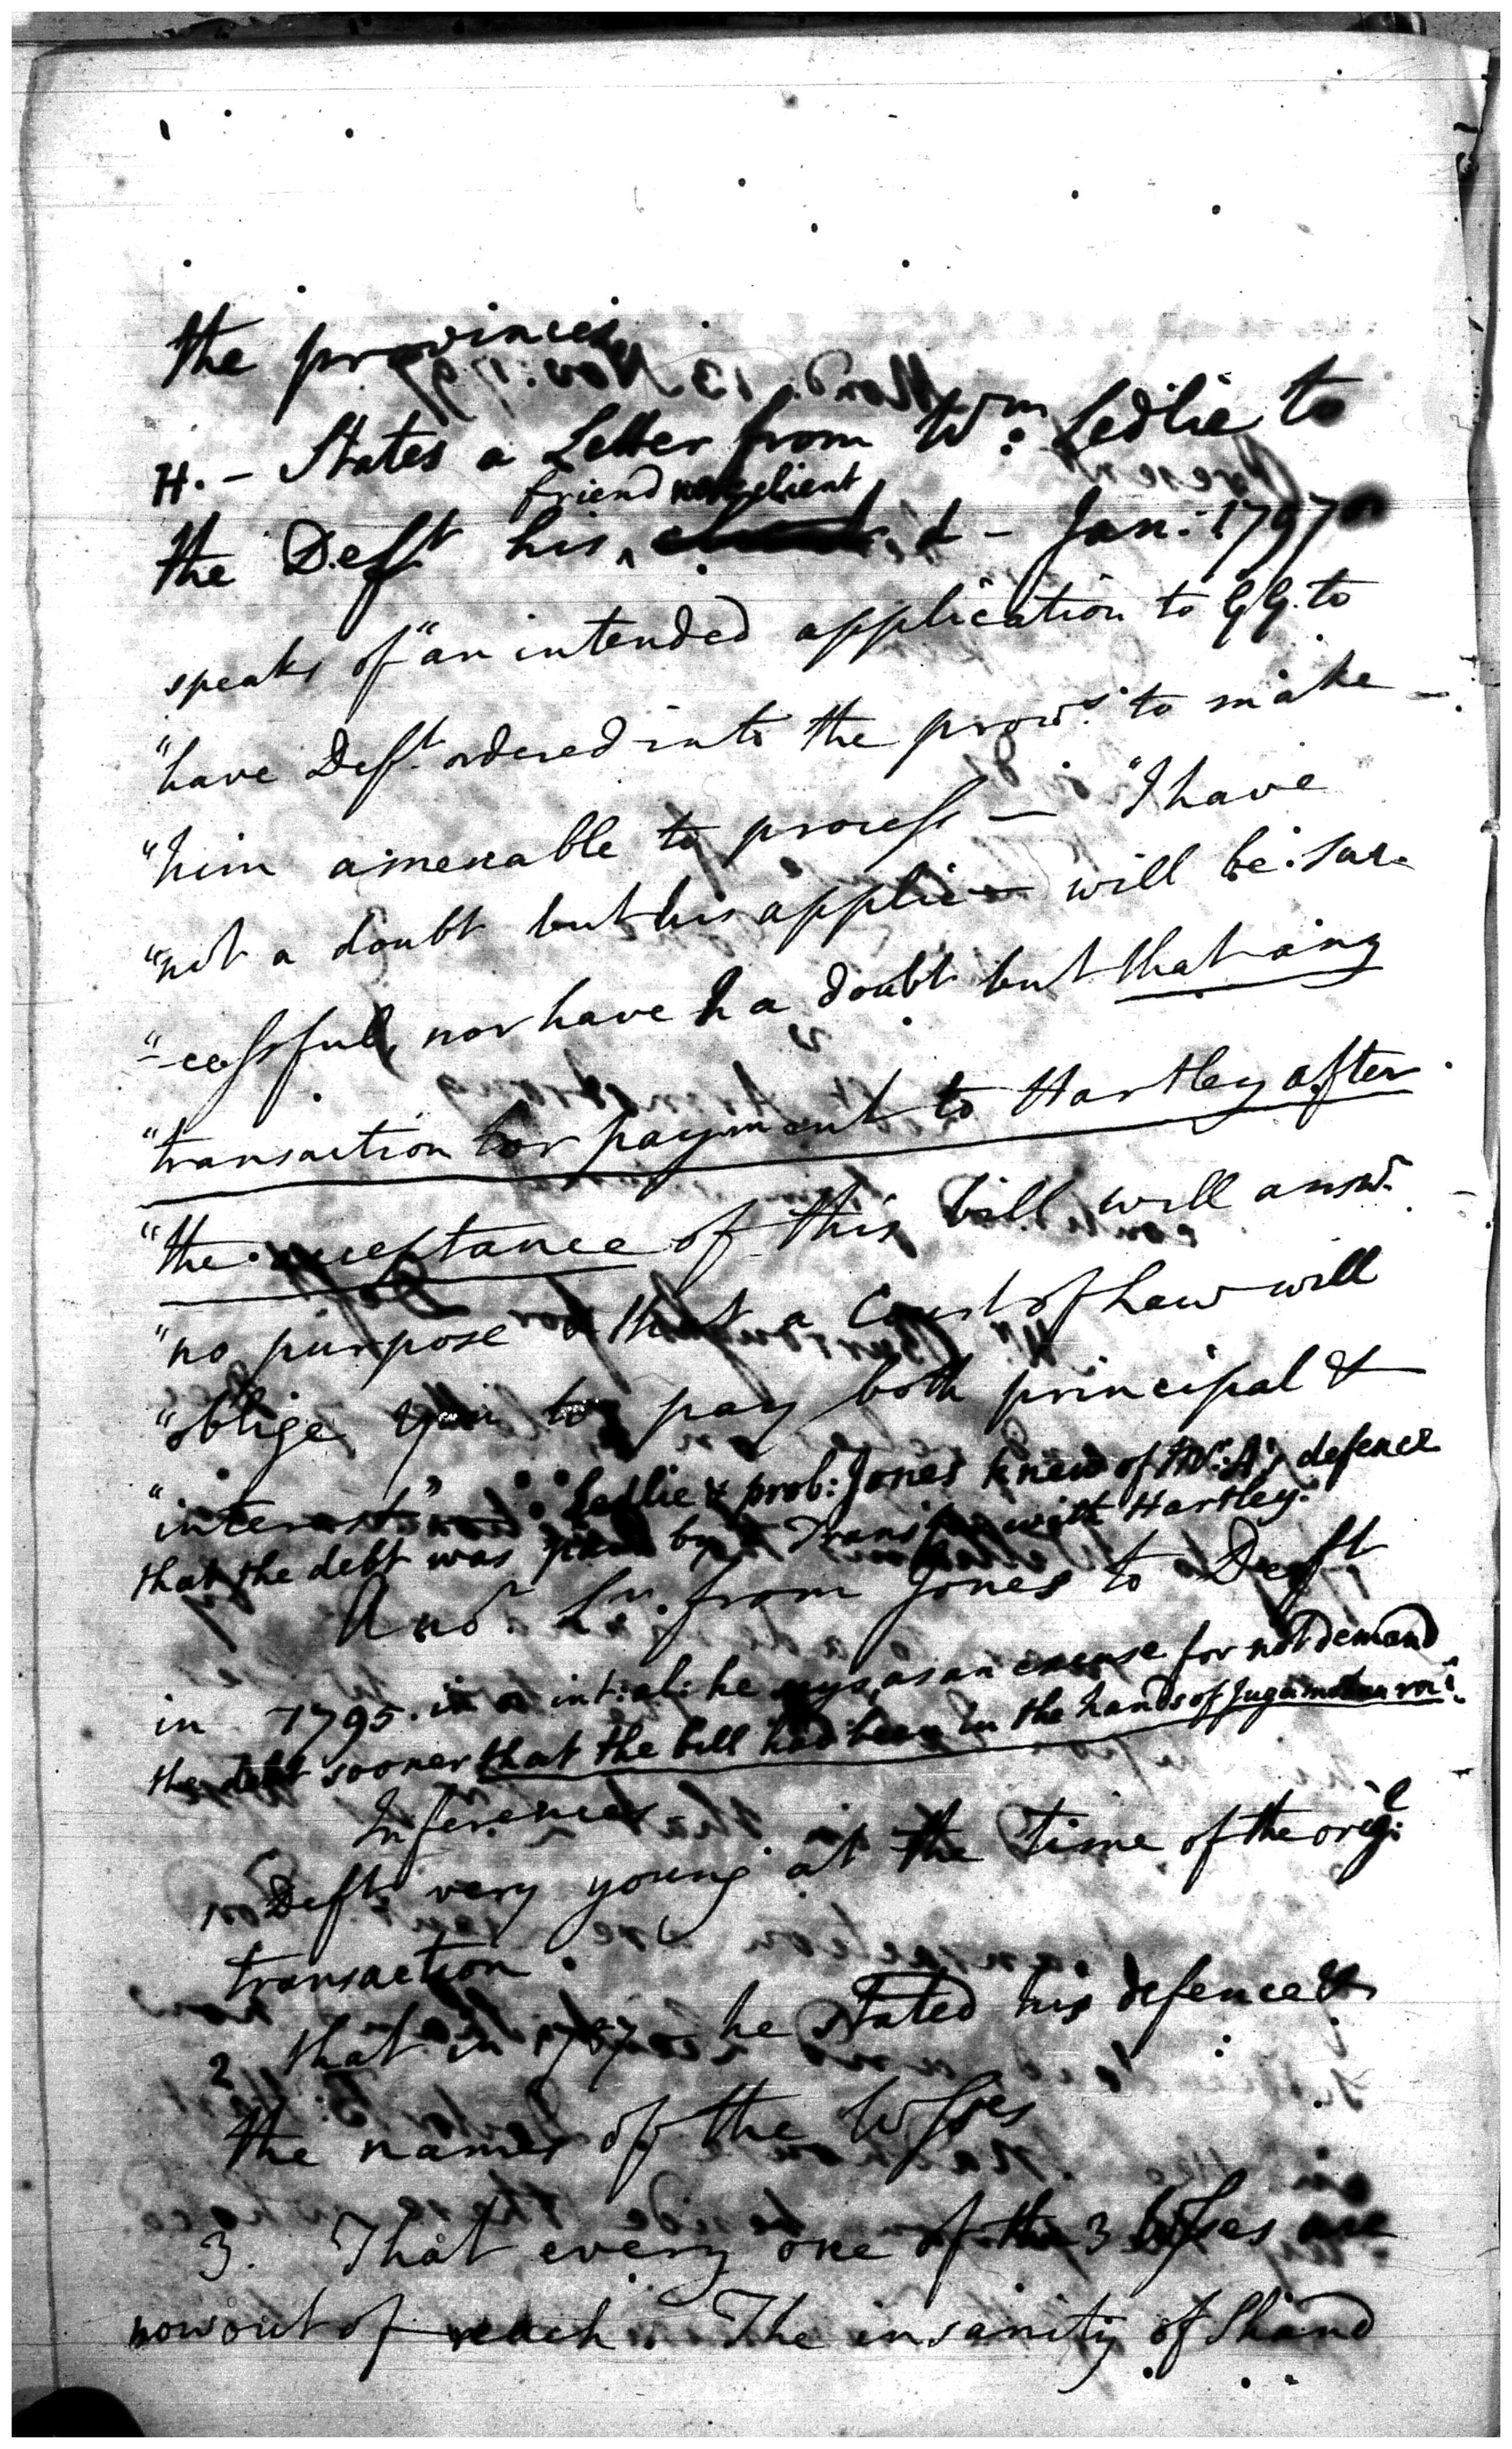 the provinces.
H. – States a Letter from Wm. Ledlie to
friend not client
the Deft. his ^ d – Jan: 1797
speaks of "an intended application to GG. to
"have Deft. ordered into the provs. to make –
"him amenable to process – "I have
"not a doubt but his applic– will be suc-
"–cessful, nor have I a doubt but that any
"transaction or payment to Hartley after
"the acceptance of this bill will answr.
"no purpose & that a Court of Law will
"oblige you to pay both principal &
"interest" Ledlie & prob: Jones knew of Mr. A's defence
that the debt was paid by Transf with Hartley.
Anor. Lr. from Jones to Deft
in 1795. in a intial: he says, as an excuse for not demand
the debt sooner that the bill had been in the hands of
Inferences –
1 Deft very young at the time of the origl:
transaction.
2 that in 1787 he stated his defence &
the names of the Wsses
3. That every one of the 3 Wsses are
now out of reach. The insanity of Shand